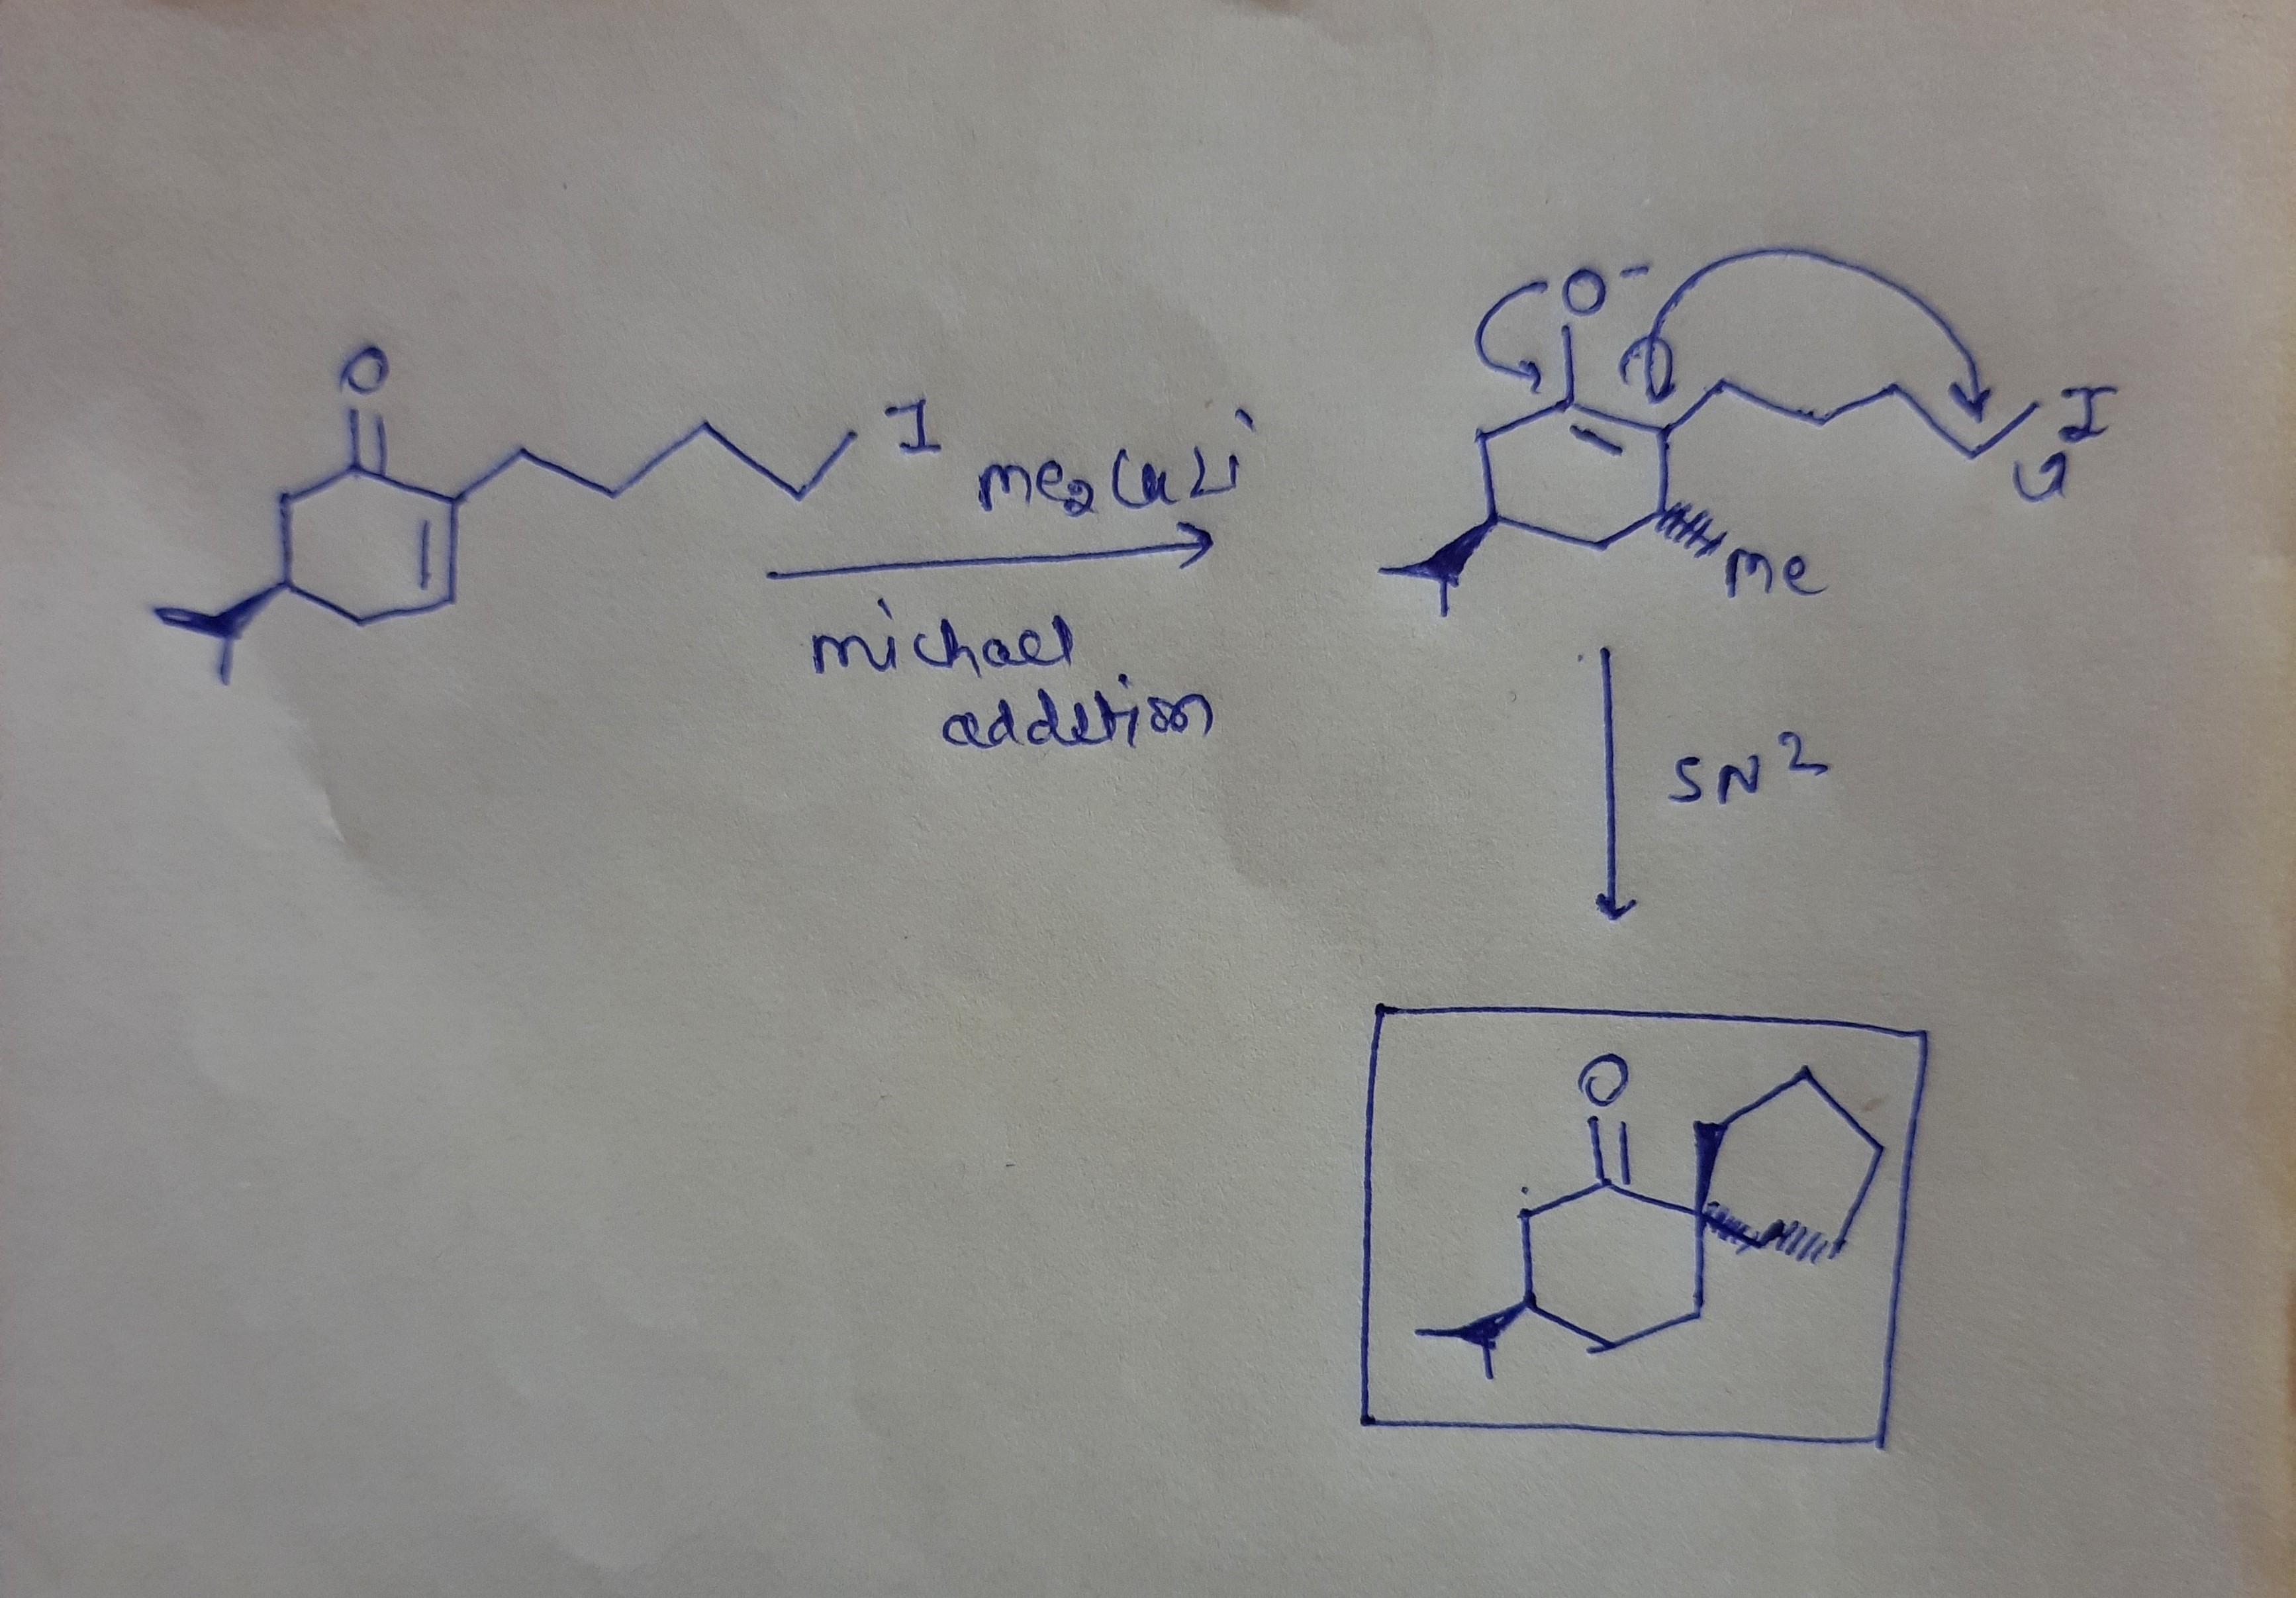 O
I
me2CuLi
michael
addetion
O-
I
me
SN2
O